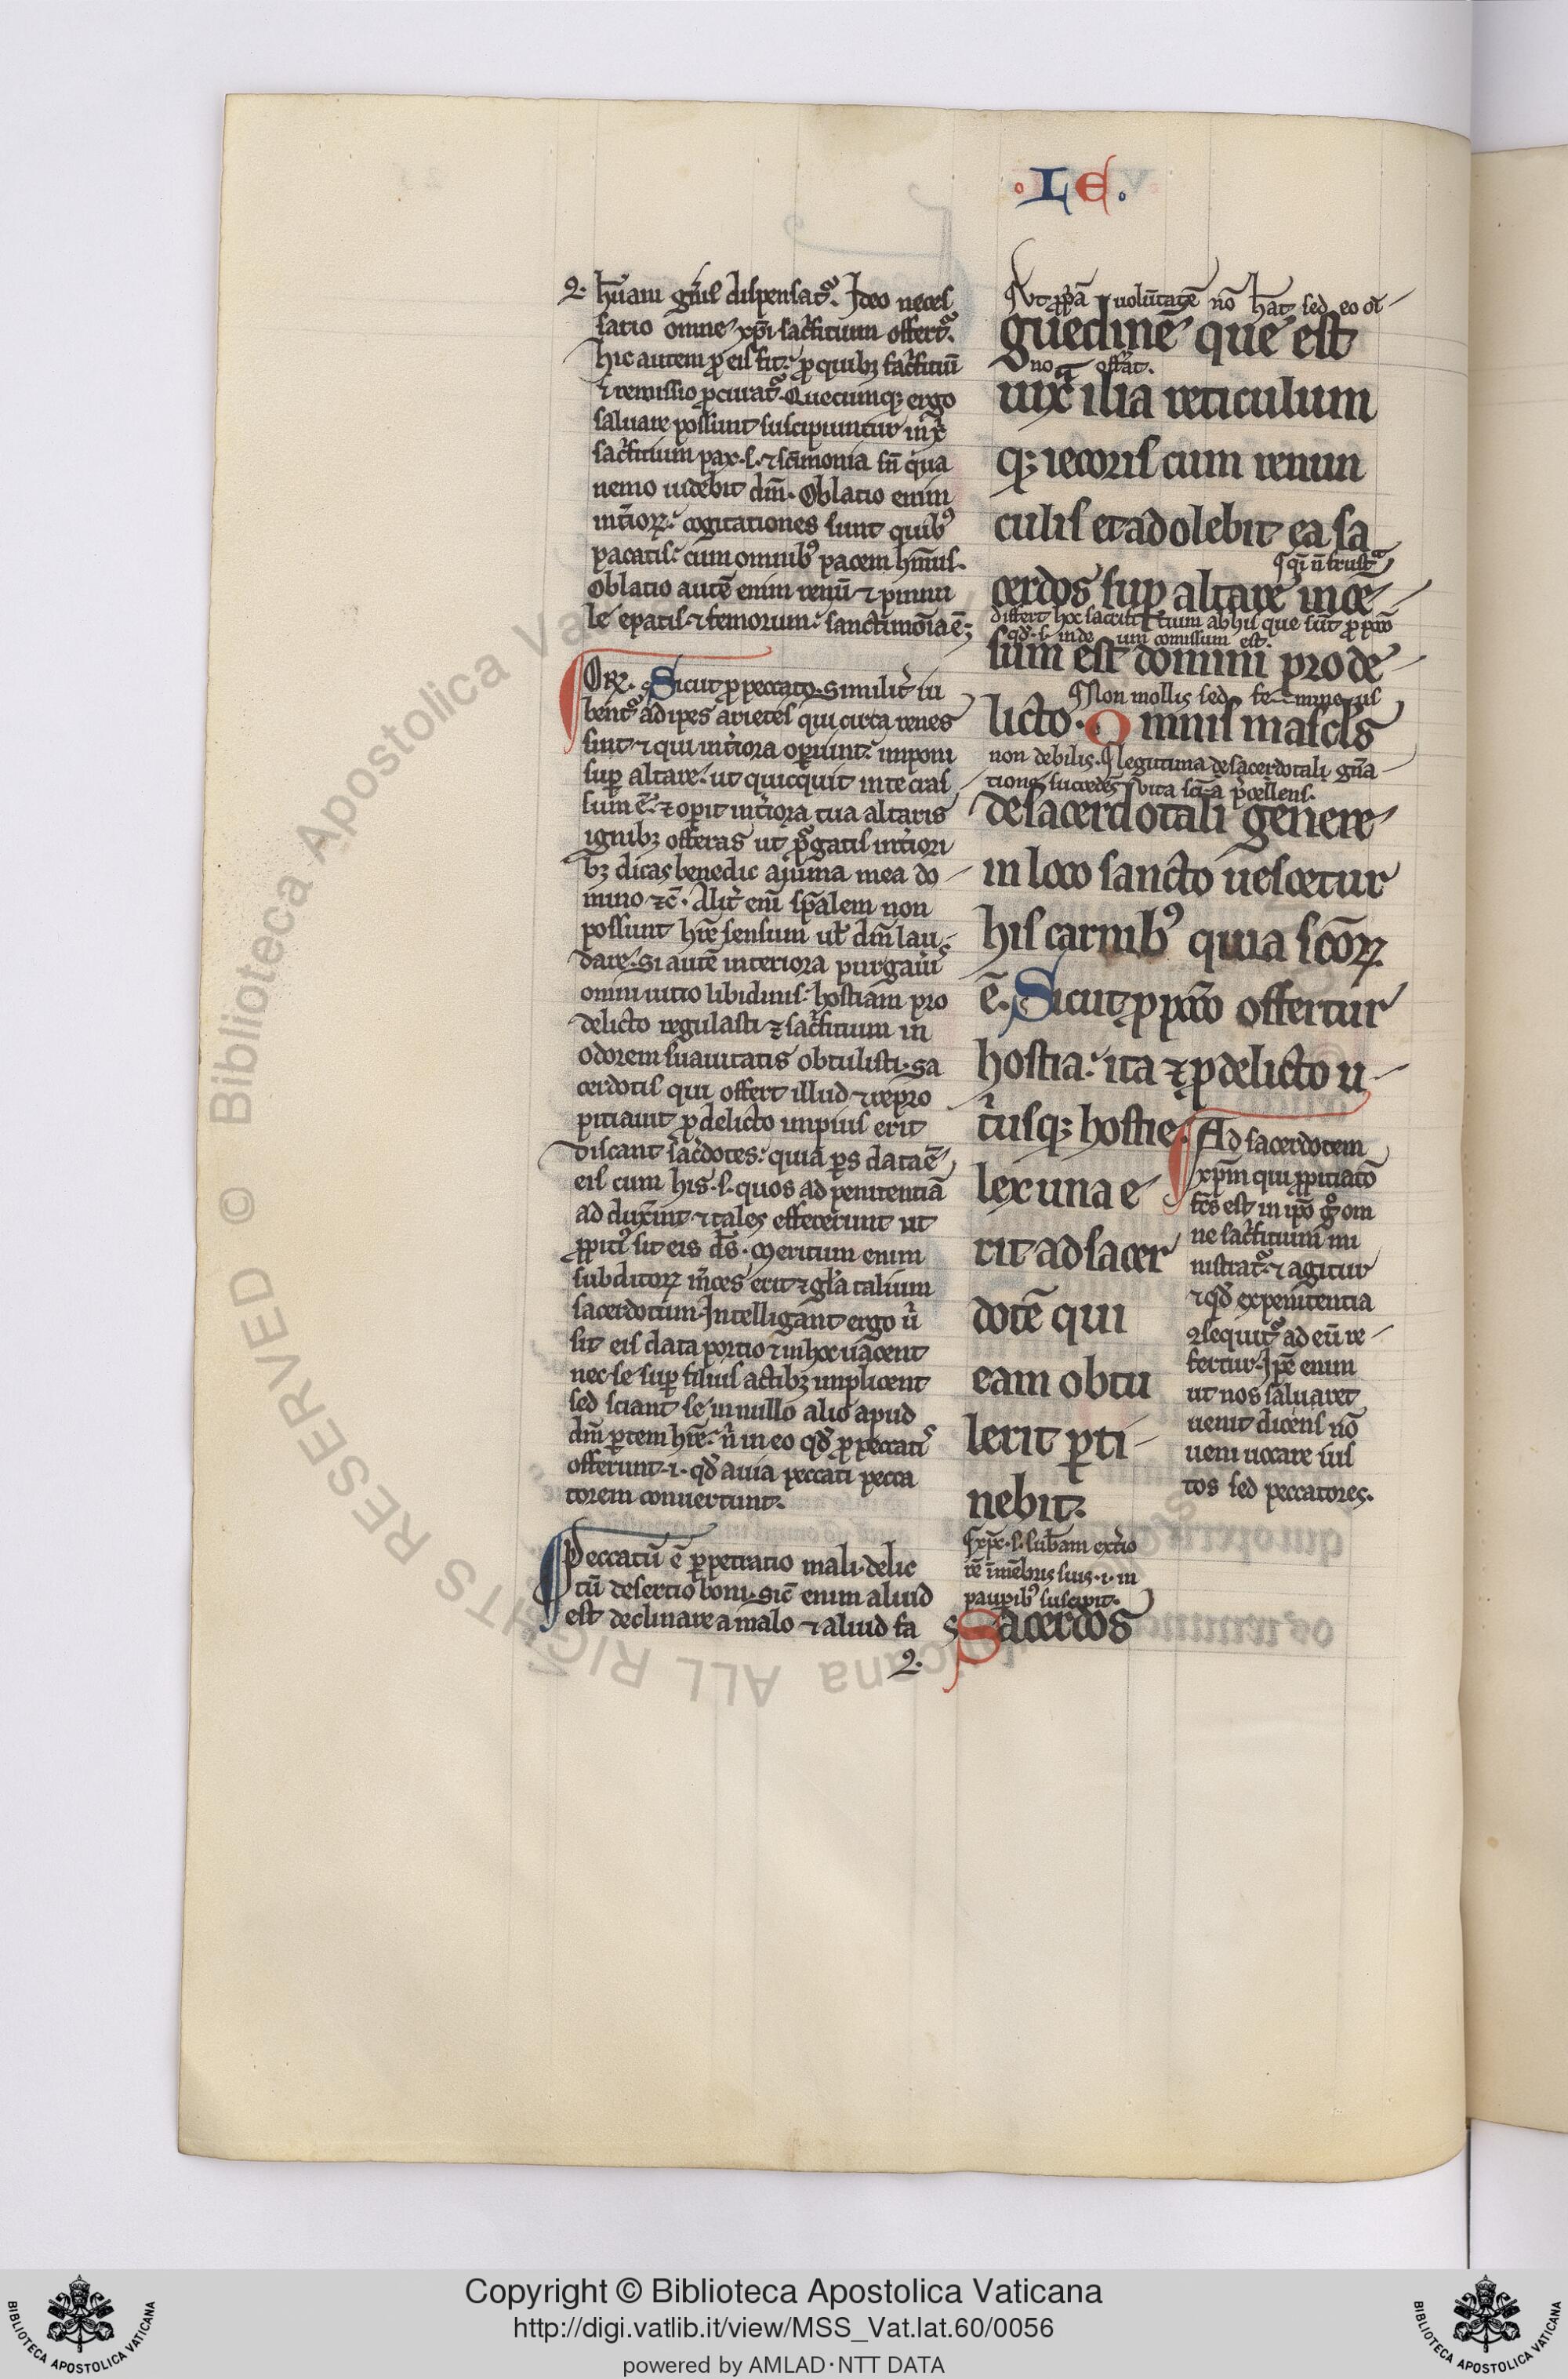 · L E ·
hūam gr̄ nil dispensat᷑. Ideo neces
sario omne xp̄i sacͥficium offert᷑.
hic autem ꝓ eis fit: ꝓ quibꝫ sacͥficiū
⁊ remissio ꝓcurat᷑. Quecumqꝫ ergo
saluare possunt suscipiuntur
sacͥficium pax .s. ⁊ sc̄imonia sn̄ qua
nemo uidebit dm̄. Oblatio enim
int̾ioꝝ: cogitationes sunt quibꝰ
pacatis: cum omnibꝰ pacem hēmus.
Oblatio autē enim renū ⁊ pinnu
le epatis ⁊ femorum: sanctimōia ē;
Sicut ꝓ peccato. similit̾ iu
bent᷑ adipes arietes qui circa renes
sint ⁊ qui int̾iora oꝑiunt: imponi
suꝑ altare: ut quicquit in te cras
sum ē: ⁊ oꝑit int̾iora tua altaris
ignibꝫ offeras ut purgatis int̾iori
bꝫ dicas benedic anima mea do
mino ⁊c̄. Alit̾ enī sp̄alem non
possunt hr̄e sensum ul̾ dm̄ lau
dare. Si autē interiora purgaūis
omni uitio libidinis: hostiam pro
delicto iugulasti ⁊ sacͥficium in
odorem suauitatis obtulisti. Sa
cerdotis qui offert illud ⁊ repro
pitiauit ꝓ delicto impius erit
discant sac̾dotes: quia ꝑs data ē
eis cum his .s. quos ad penitentiā
adduxerint ⁊ tales effecerunt ut
ꝓpitiꝰ sit eis d̄s. Meritum enim
subditoꝝ m̾ces erit ⁊ gl̾a talium
sacerdotum. Intelligant ergo u̾
sit eis data portio ⁊ in hoc uacent
nec se suꝑfluis actibꝫ implicent
sed sciant se in nullo alio apud
dm̄ ꝑtem hr̄e: n̾ in eo qd̾ ꝓ peccatis
offerunt .i. qd̾ a uia peccati pecca
torem conuertunt.
Peccatū ē ꝑpetratio mali. delic
tū desertio boni. Sic̄ enim aliud
est declinare a malo ⁊ aliud fa
¶ Vt ꝓpͥa uolūtatē nō hēat sed eo
guedinē que est
nō offerat.
iuxͣ ilia reticulum
qꝫ iecoris cum renun
culis et adolebit ea sa
¶ qͥ n̄ frustͣ
cerdos suꝑ altare ince
differt hoc sacrificium ab his que sūt ꝓ pcc̄o
um comissum est.
sum est domini pro de
¶ Non mollis sed femineus
licto. Omnis masclꝰ
non debilis. ¶ legitima de sacerdotali gn̄a
tione succedēs uita scīa p̾cellens.
de sacerdotali genere
in loco sancto uescetur
his carnibꝰ quia sc̄oꝝ
ē. Sicut ꝓ pcc̄o offertur
hostia: ita ⁊ ꝓ delicto u
t̾usqꝫ hostie
lex una e
rit ad sacer
dotē qui
eam obtu
lerit ꝑti
nebit.
Ad sacerdotem
xp̄m qui ꝓpitiatō
fc̄s est in ip̄o gͦ om
ne sacͥficium mi
nistrat᷑ ⁊ agitur
⁊ qd̾ ex penitentia
ꝯsequit᷑ ad eū re
fertur. Ip̄e enim
ut nos saluaret
uenit dicens nō
ueni uocare ius
tos sed peccatores.
¶ xp̄c .s. lubam ext̾io
rē in mēbris suis .i. in
pauꝑibꝰ suscipit.
Sacerdos
© Biblioteca Apostolica Vaticana ALL RIGHTS RESERVED
Copyright © Biblioteca Apostolica Vaticana
http://digi.vatlib.it/view/MSS_Vat.lat.60/0056
powered by AMLAD·NTT DATA
BIBLIOTECA APOSTOLICA VATICANA
BIBLIOTECA APOSTOLICA VATICANA